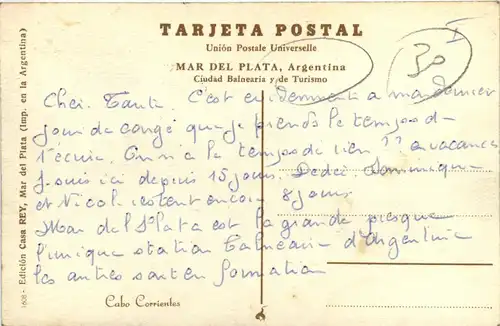 TARJETA POSTAL
Unión Postale Universelle
MAR DEL PLATA, Argentina
Ciudad Balnearia y de Turismo
I
30
Cher Tante. C'est évidemment à mon dernier
jour de congé que je prends le temps de
t'écrire. On n'a le temps de rien en vacances
Je suis ici depuis 15 jours. Dédé, Dominique
et Nicole restent encore 8 jours
Mar del Plata est la grande presque
l'unique station balnéaire d'Argentine
les autres sont en formation
Cabo Corrientes
1608 - Edición Casa REY, Mar del Plata (Imp. en la Argentina)